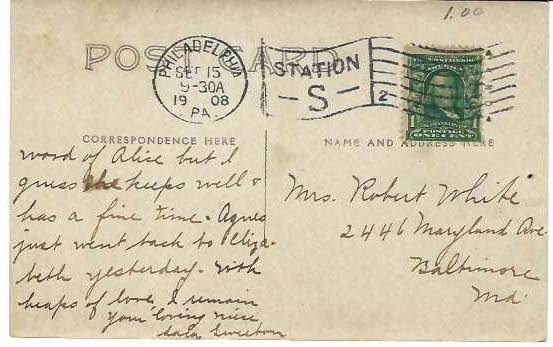 1.00
POST CARD
PHILADELPHIA
SEP 15
9-30A
1908
PA.
STATION
-S-
2
1 POSTAGE 1
ONE CENT
CORRESPONDENCE HERE
NAME AND ADDRESS HERE
word of Alice but I
guess she keeps well &
has a fine time. Agnes
just went back to Eliza-
beth yesterday. With
heaps of love, I remain
Your loving niece
Mrs. Robert White
2446 Maryland Ave
Baltimore
Md.